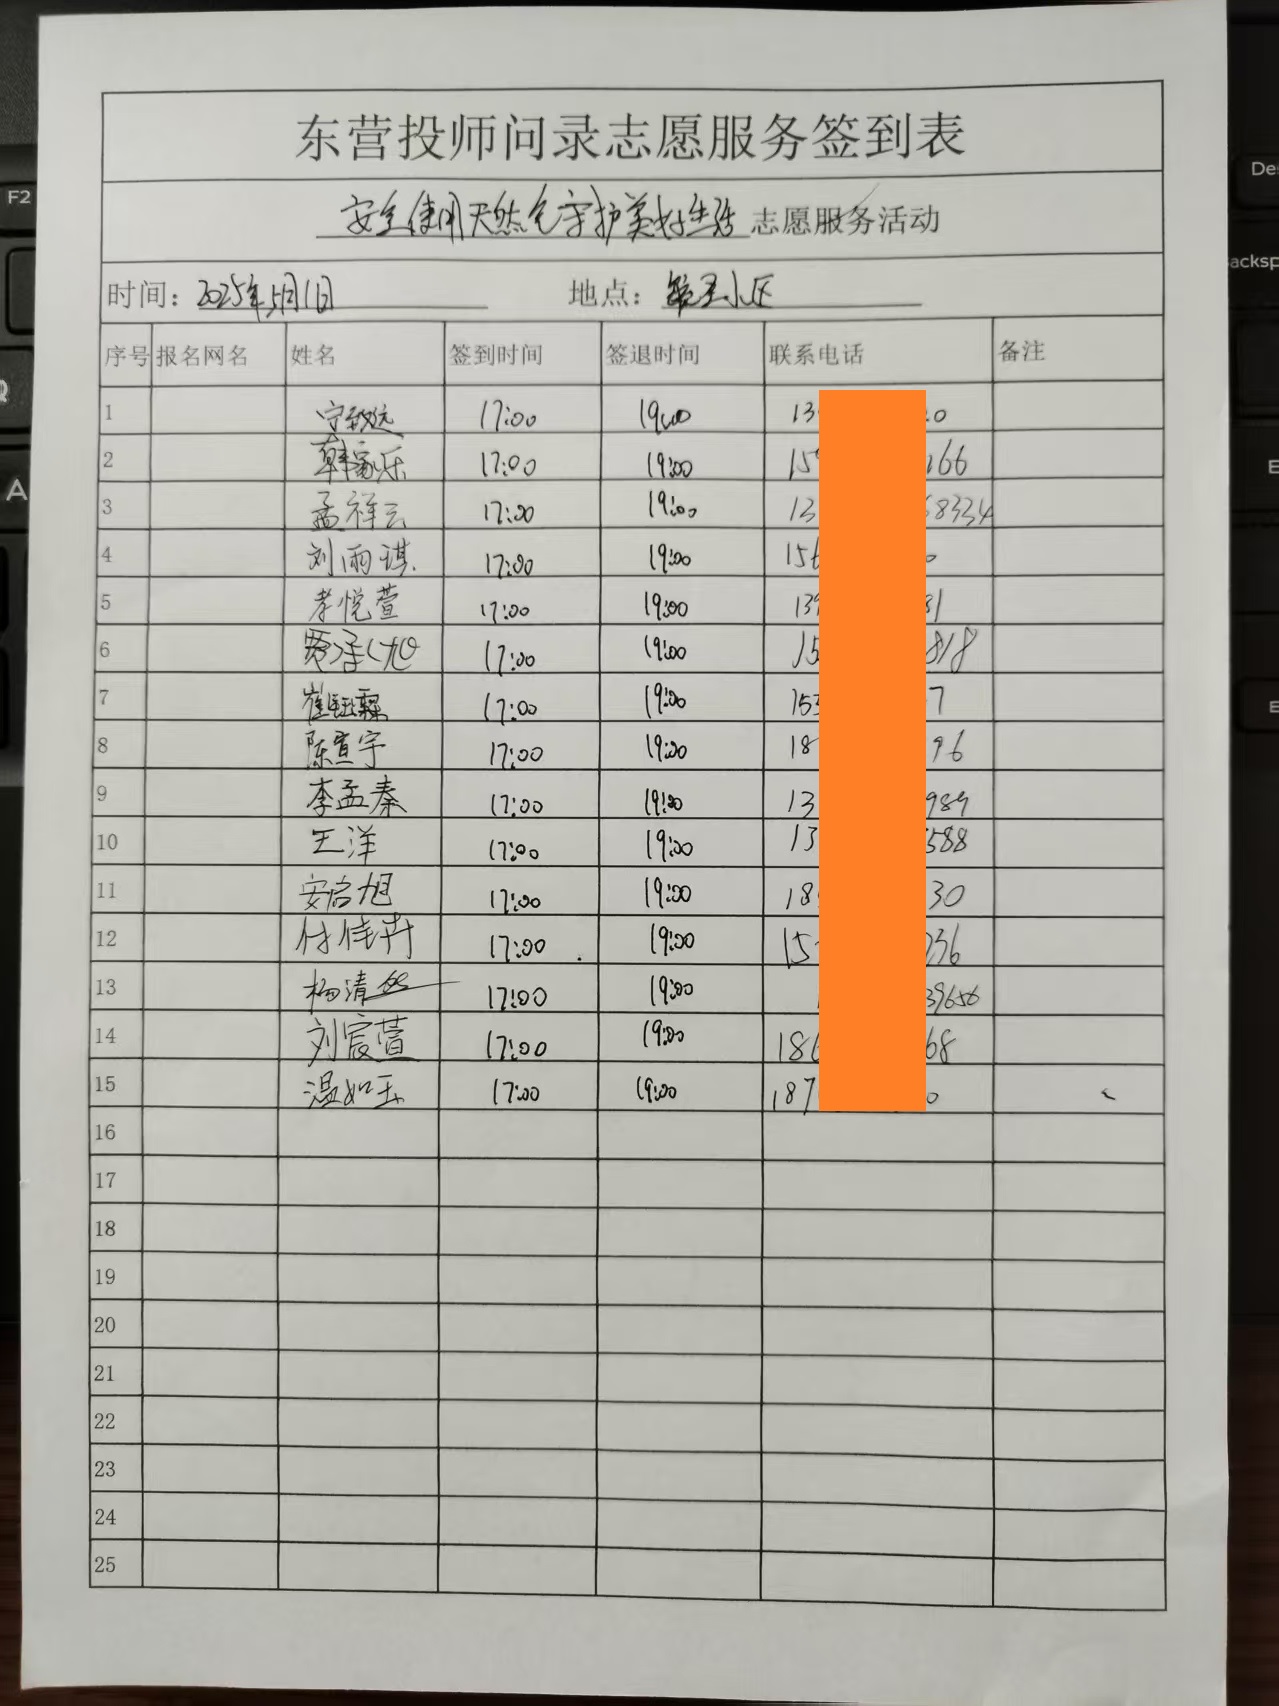 东营投师问录志愿服务签到表
安全使用天然气守护美好生活 志愿服务活动
时间：2025年5月1日 地点：小区
序号 报名网名 姓名 签到时间 签退时间 联系电话 备注
1 宁致远 17:00 19:00 13 0
2 韩家乐 17:00 19:00 15 166
3 孟祥云 17:00 19:00 13 68334
4 刘雨琪 17:00 19:00 156 0
5 李悦萱 17:00 19:00 139 81
6 贾承优 17:00 19:00 15 818
7 崔钰霖 17:00 19:00 153 7
8 陈宣宇 17:00 19:00 18 96
9 李孟秦 17:00 19:00 13 989
10 王洋 17:00 19:00 13 588
11 安启旭 17:00 19:00 18 30
12 付佳卉 17:00 19:00 15 236
13 杨清 17:00 19:00 39656
14 刘宸萱 17:00 19:00 186 68
15 温如玉 17:00 19:00 187 0
16
17
18
19
20
21
22
23
24
25
F2
A